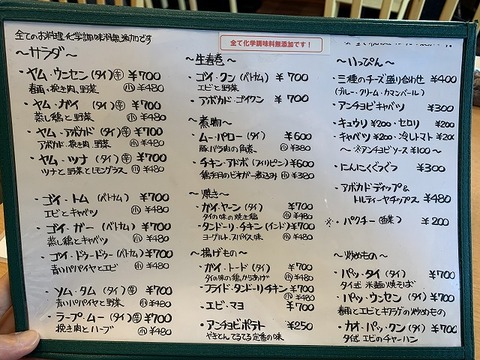 全てのお料理化学調味料無添加です
〜サラダ〜
・ヤム・ウンセン(タイ) ¥700
春雨、挽き肉、野菜 ¥480
・ヤム・ガイ(タイ) ¥700
蒸し鶏と野菜 ¥480
・ヤム・アボカド(タイ) ¥700
アボカド、挽き肉、野菜 ¥480
・ヤム・ツナ(タイ) ¥700
ツナと野菜とレモングラス ¥480
・ゴイ・トム(ベトナム) ¥700
エビとキャベツ ¥480
・ゴイ・ガー(ベトナム) ¥700
蒸し鶏とキャベツ ¥480
・ゴイ・ドゥードゥー(ベトナム) ¥700
青いパパイヤとエビ ¥480
・ソム・タム(タイ) ¥700
青いパパイヤと野菜 ¥480
・ラープ・ムー(タイ) ¥700
挽き肉とハーブ ¥480
全て化学調味料無添加です!
〜生春巻〜
・ゴイ・クン(ベトナム) ¥700
エビと野菜
・アボカドゴイクン ¥700
〜煮物〜
・ムー・パロー(タイ) ¥600
豚バラ肉の角煮 ¥380
・チキン・アドボ(フィリピン) ¥600
鶏手羽のビネガー煮込み ¥380
〜焼き〜
・ガイ・ヤーン(タイ) ¥700
タイの味の焼き鶏 ¥480
・タンドーリ・チキン(インド) ¥700
ヨーグルト、スパイス味 ¥480
〜揚げもの〜
・ガイ・トード(タイ) ¥700
タイの味、から揚げ ¥480
・フライド・タンドーリチキン ¥700
¥480
・エビ・マヨ ¥700
・アンチョビポテト ¥250
やきてん てるてる定番の味
〜いっぴん〜
・三種のチーズ盛り合わせ ¥400
(ブルー・クリーム・カマンベール)
・アンチョビキャベツ ¥300
・キュウリ ¥200・セロリ ¥200
キャベツ ¥200・冷しトマト
〜※アンチョビソース ¥100〜
・にんにくぐつぐつ ¥300
・アボカドディップ&
トルティーヤチップス ¥480
※・パクチー(香菜) ¥200
〜炒めもの〜
・パッ・タイ(タイ) ¥700
タイ式 米麺の焼そば
・パッ・ウンセン(タイ) ¥700
春雨とエビとキクラゲの炒めもの
・カオ・パッ・クン(タイ) ¥700
タイ式 エビのチャーハン